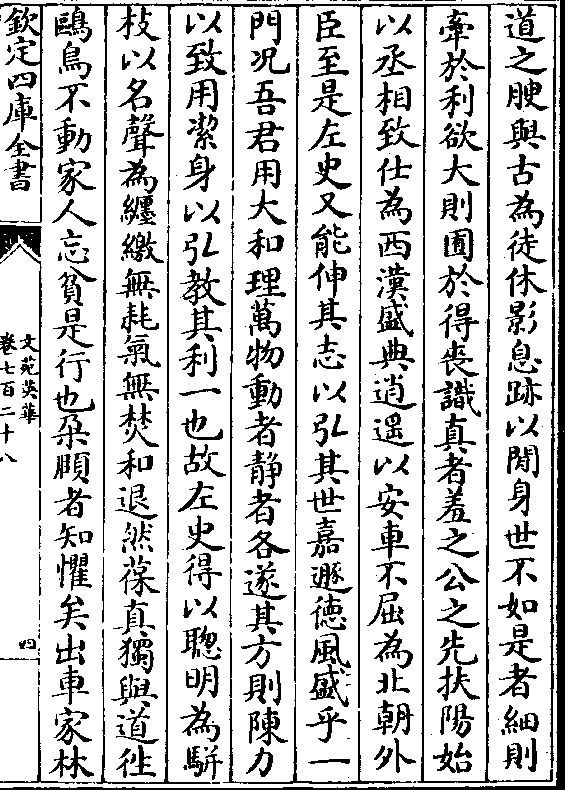 道之腴與古為徒休影息跡以閒身世不如是者細則
牽於利欲大則囿於得喪識真者羞之公之先扶陽始
以丞相致仕為西漢盛典逍遥以安車不屈為北朝外
臣至是左史又能伸其志以弘其世嘉遯徳風盛乎一
門况吾君用大和理萬物動者静者各遂其方則陳力
以致用潔身以弘教其利一也故左史得以聰明為駢
枝以名聲為纒繳無耗氣無焚和退然葆真獨與道往
鷗鳥不動家人忘貧是行也朶頥者知懼矣出車家林
欽定四庫全書
文苑英華
卷七百二十八
四